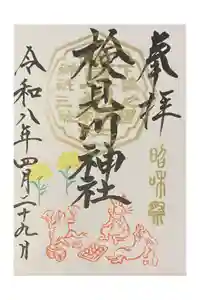 奉拝
検見川神社
昭味祭
令和八年四月二十九日